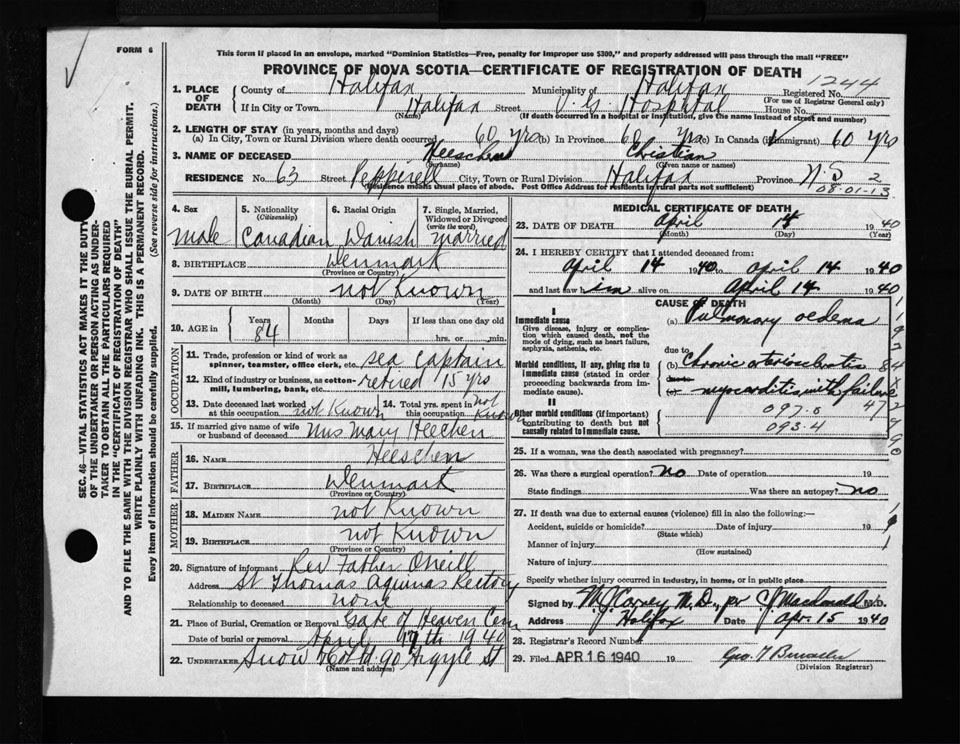 FORM 6
This form if placed in an envelope, marked "Dominion Statistics—Free, penalty for improper use $300," and properly addressed will pass through the mail "FREE"
PROVINCE OF NOVA SCOTIA—CERTIFICATE OF REGISTRATION OF DEATH
1. PLACE OF DEATH
County of Halifax Municipality of Halifax Registered No. 1244
(For use of Registrar General only)
If in City or Town Halifax Street V. G. Hospital House No.
(Name) (If death occurred in a hospital or institution, give the name instead of street and number)
2. LENGTH OF STAY (in years, months and days)
(a) In City, Town or Rural Division where death occurred 60 yrs (b) In Province 60 yrs (c) In Canada (if immigrant) 60 yrs
3. NAME OF DECEASED Heeschen Christian
(Surname) (Given name or names)
RESIDENCE No. 63 Street Pepperell City, Town or Rural Division Halifax Province N.S. 2
(Residence means usual place of abode. Post Office Address for residents in rural parts not sufficient) 08-01-13
4. Sex
male
5. Nationality (Citizenship)
Canadian
6. Racial Origin
Danish
7. Single, Married, Widowed or Divorced (write the word)
married
8. BIRTHPLACE Denmark
(Province or Country)
9. DATE OF BIRTH not Known
(Month) (Day) (Year)
10. AGE in Years Months Days If less than one day old
84 hrs. or min.
OCCUPATION
11. Trade, profession or kind of work as spinner, teamster, office clerk, etc. sea captain
12. Kind of industry or business, as cotton-mill, lumbering, bank, etc. retired 15 yrs
13. Date deceased last worked at this occupation not Known
14. Total yrs. spent in this occupation not Known
15. If married give name of wife or husband of deceased Mrs Mary Heechen
FATHER
16. Name Heeschen
17. Birthplace Denmark
(Province or Country)
MOTHER
18. Maiden Name not Known
19. Birthplace not Known
(Province or Country)
20. Signature of informant Rev Father Oneill
Address St Thomas Aquinas Rectory
Relationship to deceased none
21. Place of Burial, Cremation or Removal Gate of Heaven Cem
Date of burial or removal April 17th 1940
22. Undertaker Snow & Co Ltd. 90 Argyle St
(Name and address)
MEDICAL CERTIFICATE OF DEATH
23. DATE OF DEATH April 14 1940
(Month) (Day) (Year)
24. I HEREBY CERTIFY that I attended deceased from:
April 14 1940 to April 14 1940
and last saw him alive on April 14 1940
CAUSE OF DEATH
I
Immediate cause
Give disease, injury or complication which caused death, not the mode of dying, such as heart failure, asphyxia, asthenia, etc.
(a) Pulmonary oedema
due to
Morbid conditions, if any, giving rise to immediate cause (stated in order proceeding backwards from immediate cause)
(b) Chronic arteriosclerotic
(c) myocarditis with failure
II
Other morbid conditions (if important) contributing to death but not causally related to immediate cause.
097.0
093.4
25. If a woman, was the death associated with pregnancy?
26. Was there a surgical operation? No Date of operation 19
State findings Was there an autopsy? no
27. If death was due to external causes (violence) fill in also the following:—
Accident, suicide or homicide? Date of injury 19
(State which)
Manner of injury
(How sustained)
Nature of injury
Specify whether injury occurred in industry, in home, or in public place
Signed by M J Carney M.D., pr C J Macdonald M.D.
Address Halifax Date Apr. 15 1940
28. Registrar's Record Number
29. Filed APR 16 1940 19
(Division Registrar)
SEC. 46—VITAL STATISTICS ACT MAKES IT THE DUTY
OF THE UNDERTAKER OR PERSON ACTING AS UNDER-
TAKER TO OBTAIN ALL THE PARTICULARS REQUIRED
IN THE "CERTIFICATE OF REGISTRATION OF DEATH"
AND TO FILE THE SAME WITH THE DIVISION REGISTRAR WHO SHALL ISSUE THE BURIAL PERMIT.
WRITE PLAINLY WITH UNFADING INK. THIS IS A PERMANENT RECORD.
Every item of information should be carefully supplied. (See reverse side for instructions.)